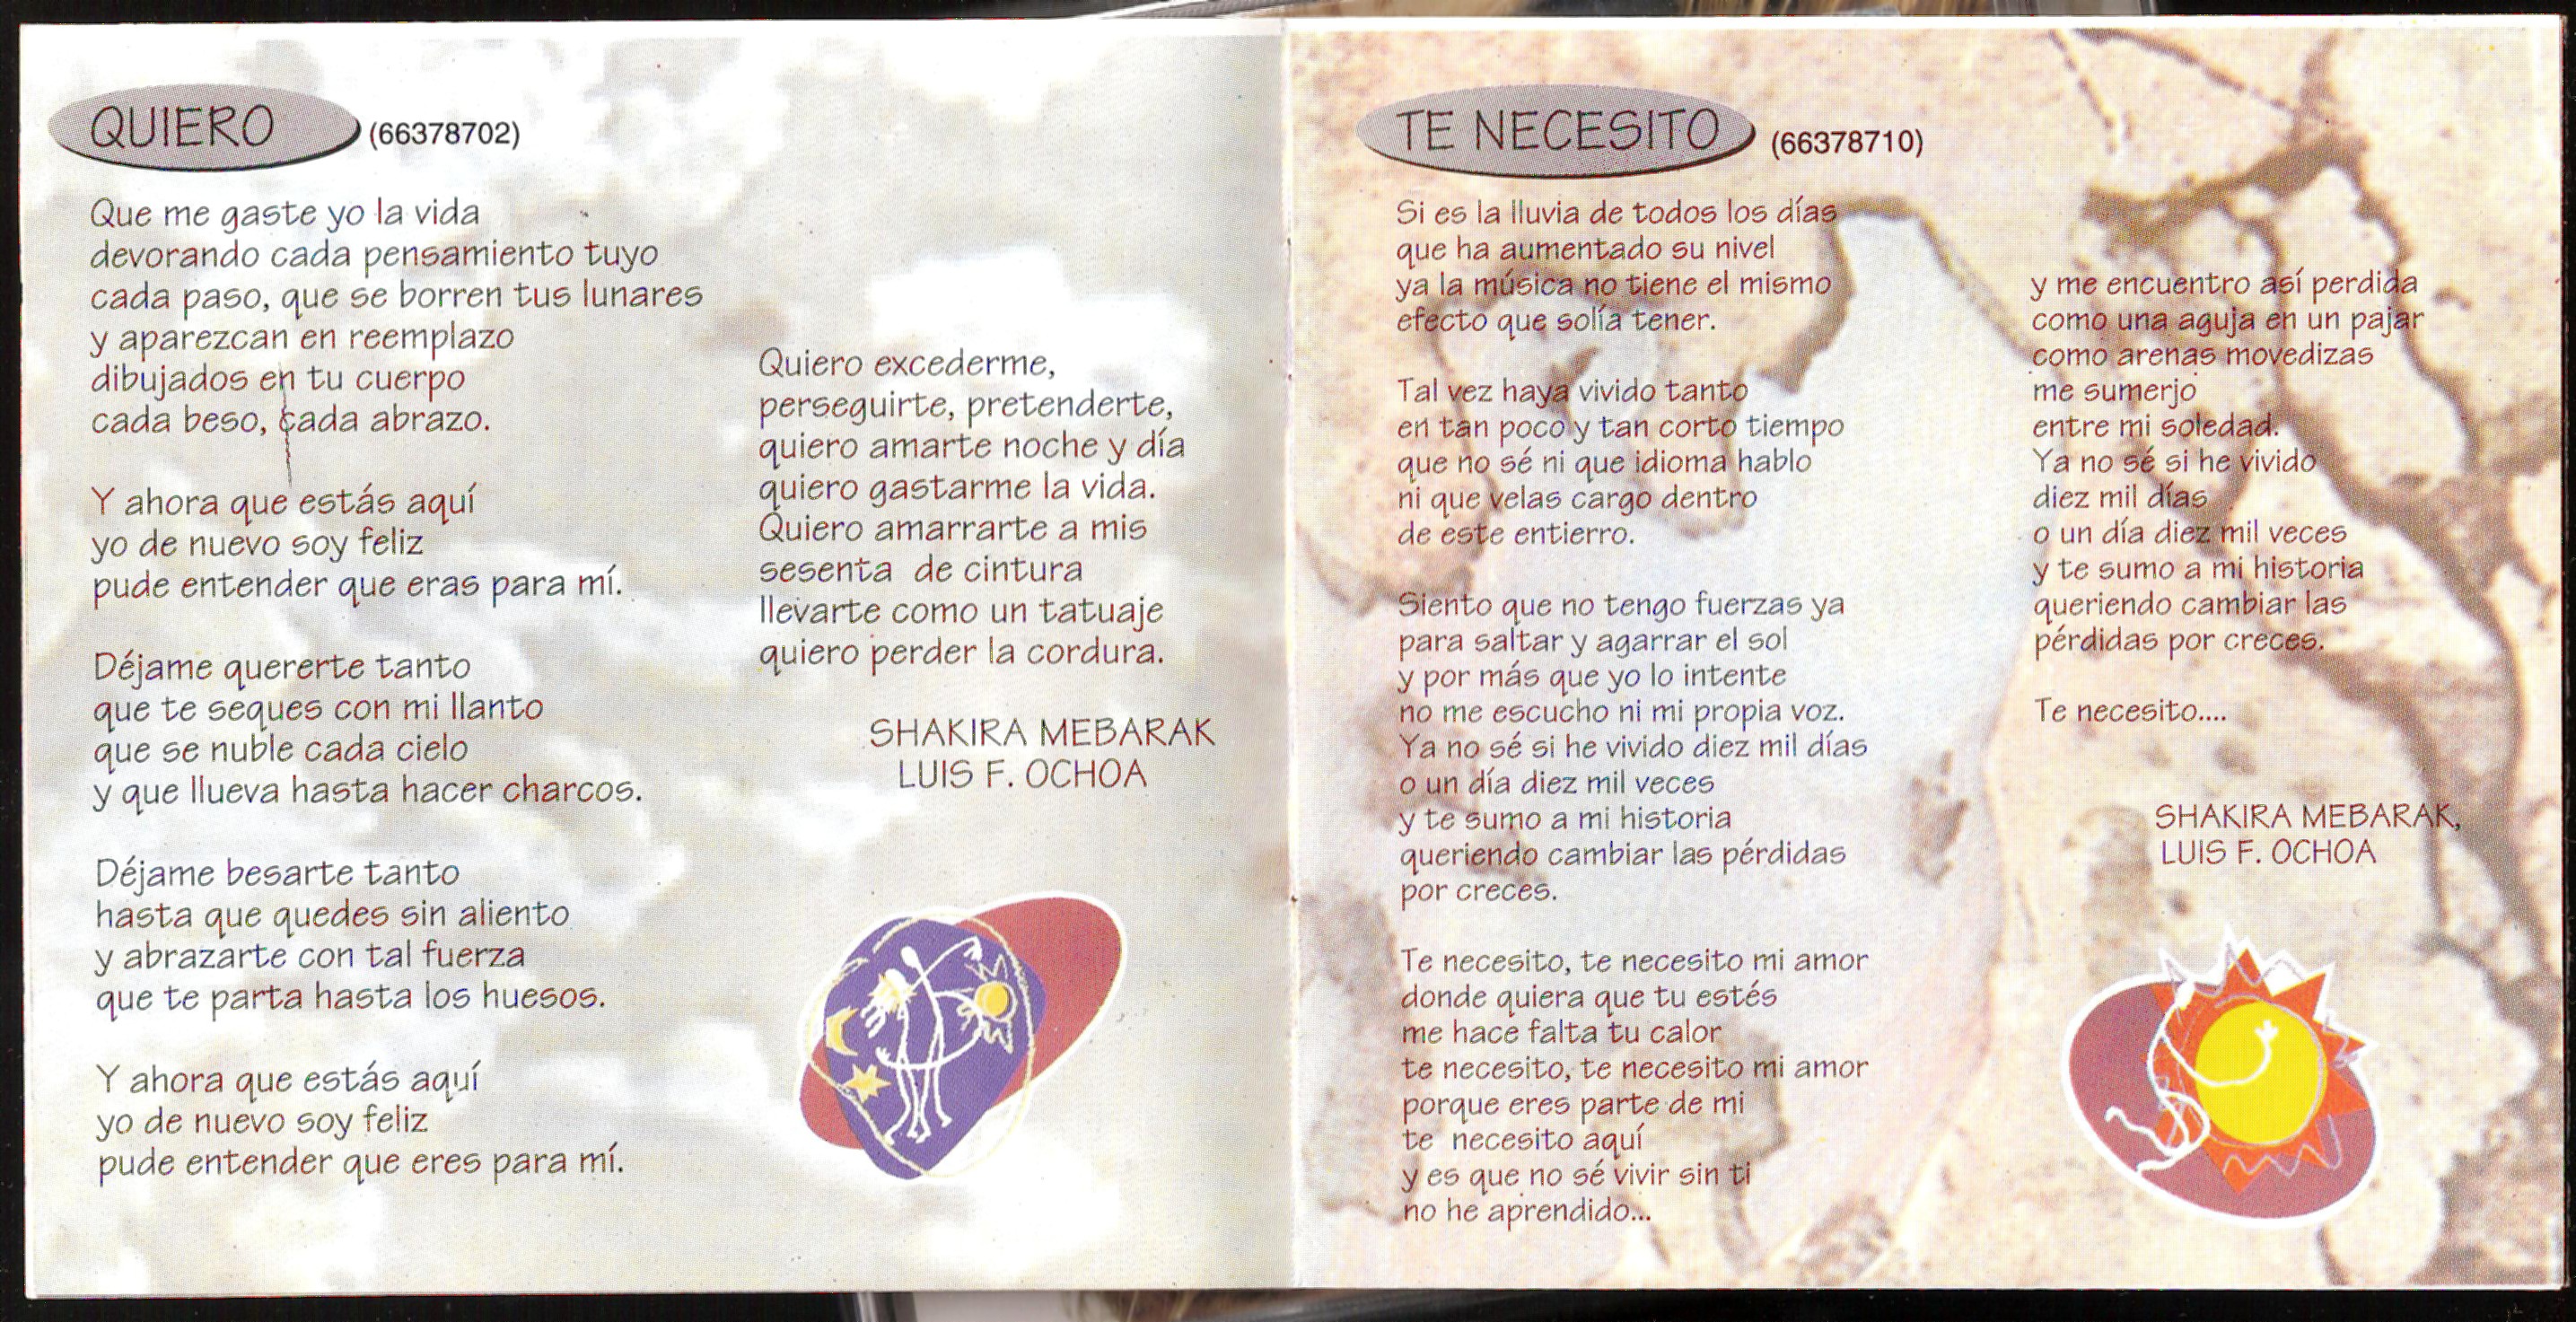 QUIERO (66378702)
Que me gaste yo la vida
devorando cada pensamiento tuyo
cada paso, que se borren tus lunares
y aparezcan en reemplazo
dibujados en tu cuerpo
cada beso, cada abrazo.
Y ahora que estás aquí
yo de nuevo soy feliz
pude entender que eras para mí.
Déjame quererte tanto
que te seques con mi llanto
que se nuble cada cielo
y que llueva hasta hacer charcos.
Déjame besarte tanto
hasta que quedes sin aliento
y abrazarte con tal fuerza
que te parta hasta los huesos.
Y ahora que estás aquí
yo de nuevo soy feliz
pude entender que eres para mí.
Quiero excederme,
perseguirte, pretenderte,
quiero amarte noche y día
quiero gastarme la vida.
Quiero amarrarte a mis
sesenta de cintura
llevarte como un tatuaje
quiero perder la cordura.
SHAKIRA MEBARAK
LUIS F. OCHOA
TE NECESITO (66378710)
Si es la lluvia de todos los días
que ha aumentado su nivel
ya la música no tiene el mismo
efecto que solía tener.
Tal vez haya vivido tanto
en tan poco y tan corto tiempo
que no sé ni que idioma hablo
ni que velas cargo dentro
de este entierro.
Siento que no tengo fuerzas ya
para saltar y agarrar el sol
y por más que yo lo intente
no me escucho ni mi propia voz.
Ya no sé si he vivido diez mil días
o un día diez mil veces
y te sumo a mi historia
queriendo cambiar las pérdidas
por creces.
Te necesito, te necesito mi amor
donde quiera que tu estés
me hace falta tu calor
te necesito, te necesito mi amor
porque eres parte de mi
te necesito aquí
y es que no sé vivir sin ti
no he aprendido...
y me encuentro así perdida
como una aguja en un pajar
como arenas movedizas
me sumerjo
entre mi soledad.
Ya no sé si he vivido
diez mil días
o un día diez mil veces
y te sumo a mi historia
queriendo cambiar las
pérdidas por creces.
Te necesito....
SHAKIRA MEBARAK,
LUIS F. OCHOA